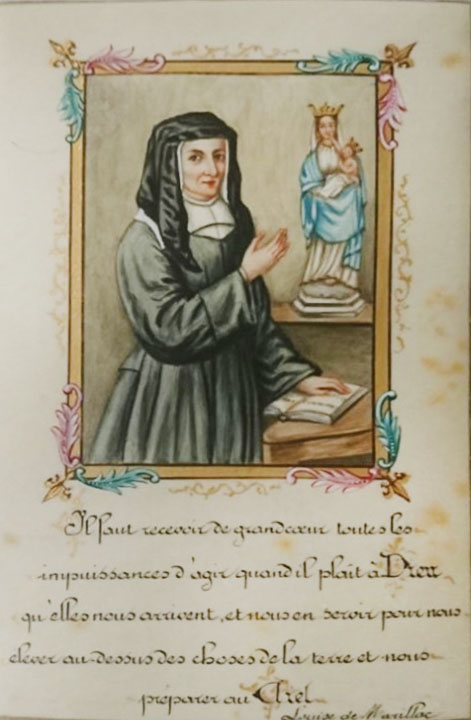 Il faut recevoir de grand cœur toutes les
impuissances d'agir quand il plait à Dieu
qu'elles nous arrivent, et nous en servir pour nous
elever au-dessus des choses de la terre et nous
préparer au Ciel
Louise de Marillac